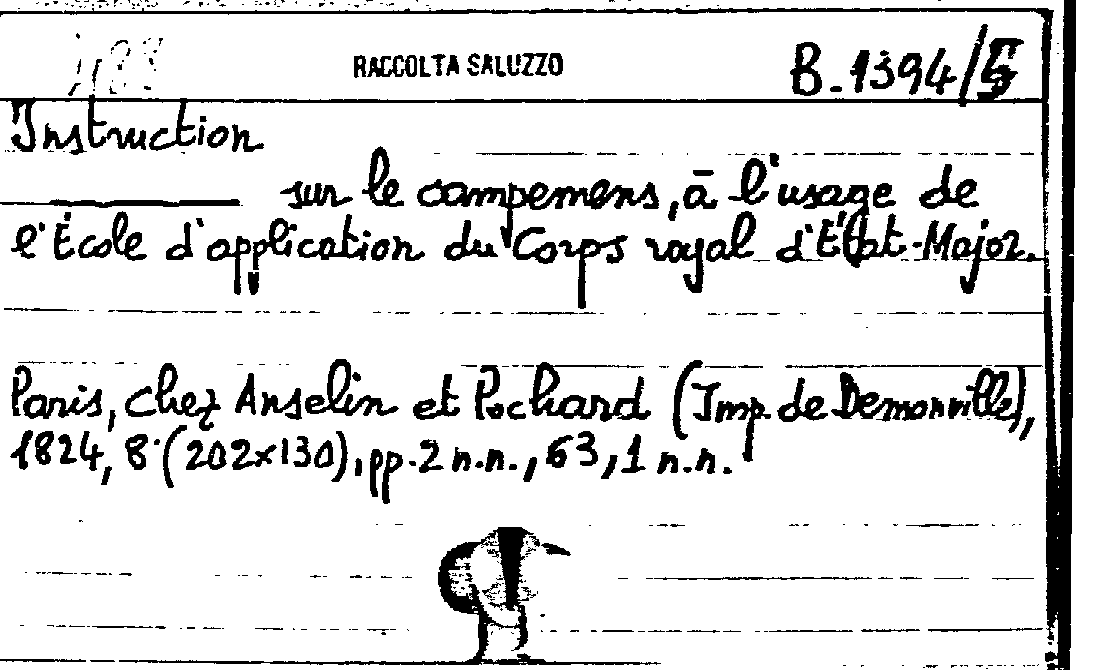 RACCOLTA SALUZZO B.1394/5
Instruction
sur le campemens, à l'usage de
l'École d'application du Corps royal d'État-Major.
Paris, chez Anselin et Pochard (Imp. de Demonville),
1824, 8° (202x130), pp. 2 n.n., 63, 1 n.n.